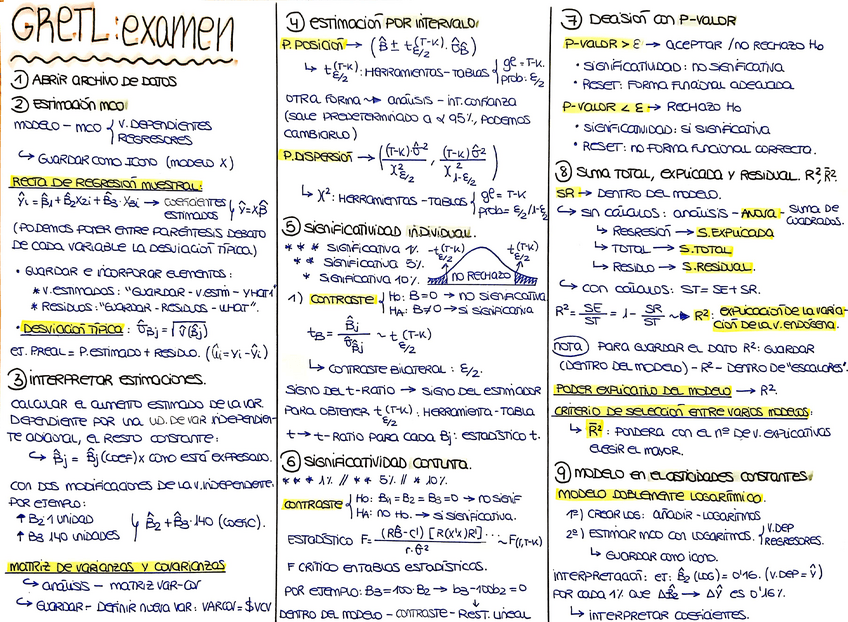 GRETL: examen
① ABRIR ARCHIVO DE DATOS
② ESTIMACIÓN MCO
MODELO – MCO { V. DEPENDIENTES
REGRESORES
↳ GUARDAR COMO ICONO (MODELO X)
RECTA DE REGRESIÓN MUESTRAL:
Ŷi = β̂1 + β̂2X2i + β̂3·X3i → COEFICIENTES ESTIMADOS } Ŷ = Xβ̂
(PODEMOS PONER ENTRE PARÉNTESIS DEBAJO
DE CADA VARIABLE LA DESVIACIÓN TÍPICA)
• GUARDAR E INCORPORAR ELEMENTOS:
* V. ESTIMADOS: "GUARDAR – V.ESTIM – YHAT1"
* RESIDUOS: "GUARDAR – RESIDUOS – UHAT".
• DESVIACIÓN TÍPICA: σ̂βj = √V̂(β̂j)
EJ. P.REAL = P.ESTIMADO + RESIDUO. (ûi = Yi – Ŷi)
③ INTERPRETAR ESTIMACIONES.
CALCULAR EL AUMENTO ESTIMADO DE LA VAR.
DEPENDIENTE POR UNA UD. DE VAR INDEPENDIEN-
TE ADICIONAL, EL RESTO CONSTANTE:
↳ β̂j = β̂j (COEF) X COMO ESTÁ EXPRESADO.
CON DOS MODIFICACIONES DE LA V. INDEPENDIENTE.
POR EJEMPLO:
↑ B2 1 UNIDAD
↑ B3 140 UNIDADES } β̂2 + β̂3·140 (COEFIC).
MATRIZ DE VARIANZAS Y COVARIANZAS
↪ ANÁLISIS – MATRIZ VAR-COV
↪ GUARDAR – DEFINIR NUEVA VAR: VARCOV = $VCV
④ ESTIMACIÓN POR INTERVALO
P. POSICIÓN → (β̂ ± t(T-K) ε/2 · σ̂β)
↳ t(T-K) ε/2: HERRAMIENTAS – TABLAS { gl = T-K.
prob: ε/2
OTRA FORMA ~> ANÁLISIS – INT. CONFIANZA
(SALE PREDETERMINADO A α 95%, PODEMOS
CAMBIARLO)
P. DISPERSIÓN → ((T-K)σ̂²/χ²ε/2 , (T-K)σ̂²/χ²1-ε/2)
↳ χ²: HERRAMIENTAS – TABLAS { gl = T-K
prob = ε/2/1-ε/2
⑤ SIGNIFICATIVIDAD INDIVIDUAL.
* * * SIGNIFICATIVA 1%.
* * SIGNIFICATIVA 5%.
* SIGNIFICATIVA 10%.
-t(T-K) ε/2 NO RECHAZO t(T-K) ε/2
1) CONTRASTE { H0: B=0 → NO SIGNIFICATIVA
HA: B≠0 → SÍ SIGNIFICATIVA
tB = β̂j/σ̂βj ~ t(T-K) ε/2
↳ CONTRASTE BILATERAL: ε/2.
SIGNO DEL t-RATIO → SIGNO DEL ESTIMADOR
PARA OBTENER t(T-K) ε/2: HERRAMIENTA-TABLA
t → t-RATIO PARA CADA Bj: ESTADÍSTICO t.
⑥ SIGNIFICATIVIDAD CONJUNTA.
*** 1% // ** 5% // * 10%.
CONTRASTE { H0: B1 = B2 = B3 = 0 → NO SIGNIF
HA: NO H0. → SÍ SIGNIFICATIVA.
ESTADÍSTICO F = (Rβ̂-C') [R(X'X)R'].../r·σ̂² ~ F(r,T-K)
F CRÍTICO EN TABLAS ESTADÍSTICAS.
POR EJEMPLO: B3 = 100·B2 → b3-100b2 = 0
↓
DENTRO DEL MODELO – CONTRASTE – REST. LINEAL
⑦ DECISIÓN CON P-VALOR
P-VALOR > ε → ACEPTAR / NO RECHAZO H0
• SIGNIFICATIVIDAD: NO SIGNIFICATIVA
• RESET: FORMA FUNCIONAL ADECUADA.
P-VALOR < ε → RECHAZO H0
• SIGNIFICATIVIDAD: SÍ SIGNIFICATIVA
• RESET: NO FORMA FUNCIONAL CORRECTA.
⑧ SUMA TOTAL, EXPLICADA Y RESIDUAL. R², R̄².
SR → DENTRO DEL MODELO.
↪ SIN CÁLCULOS: ANÁLISIS – ANOVA – SUMA DE CUADRADOS.
↳ REGRESIÓN → S. EXPLICADA
↳ TOTAL → S. TOTAL
↳ RESIDUO → S. RESIDUAL.
↪ CON CÁLCULOS: ST = SE + SR.
R² = SE/ST = 1 – SR/ST ~> R²: EXPLICACIÓN DE LA VARIA-
CIÓN DE LA V. ENDÓGENA.
NOTA PARA GUARDAR EL DATO R²: GUARDAR
(DENTRO DEL MODELO) – R² – DENTRO DE "ESCALARES".
PODER EXPLICATIVO DEL MODELO → R².
CRITERIO DE SELECCIÓN ENTRE VARIOS MODELOS:
↳ R̄²: PONDERA CON EL Nº DE V. EXPLICATIVAS
ELEGIR EL MAYOR.
⑨ MODELO EN ELASTICIDADES CONSTANTES.
MODELO DOBLEMENTE LOGARÍTMICO.
1º) CREAR LOS: AÑADIR – LOGARITMOS
2º) ESTIMAR MCO CON LOGARITMOS. { V.DEP
REGRESORES.
↳ GUARDAR COMO ICONO.
INTERPRETACIÓN: EJ: β̂2 (LOG) = 0'16. (V.DEP = Ŷ)
POR CADA 1% QUE Δβ̂2 → ΔŶ ES 0'16%.
↳ INTERPRETAR COEFICIENTES.